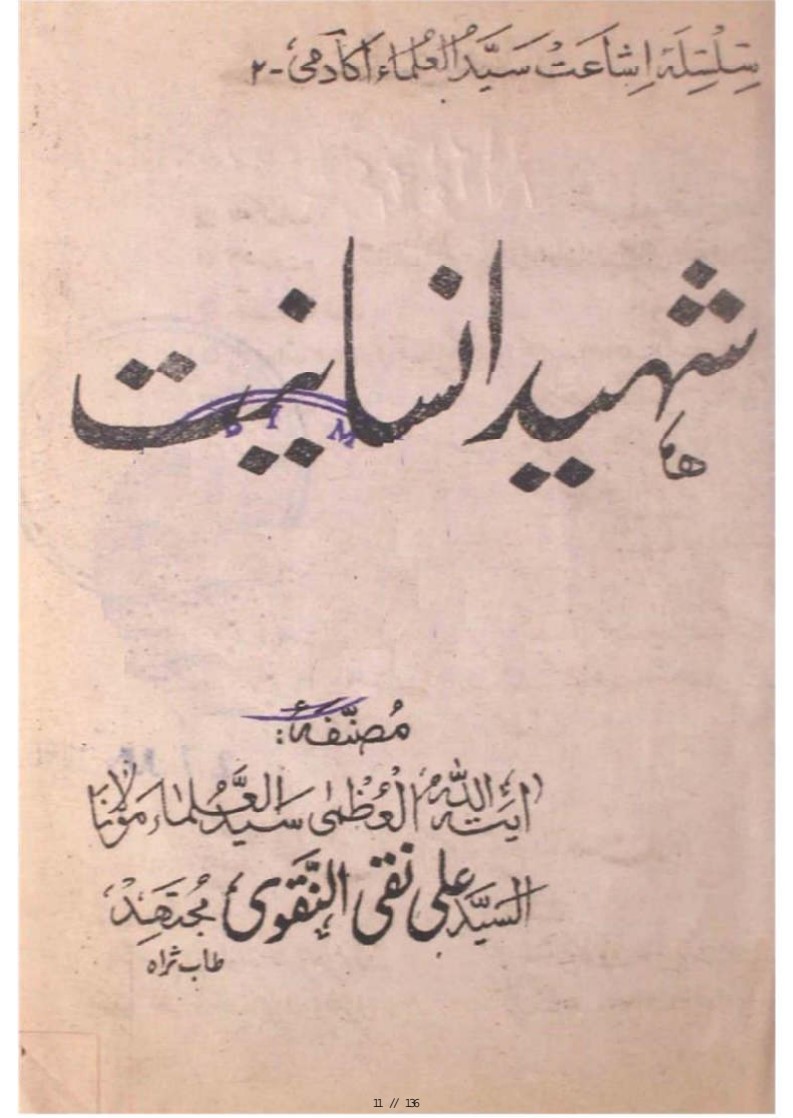 سِلْسِلَۂ اِشاعَتْ سَیِّدُ العُلَماء اکادمی - ۲
شہید انسانیت
مُصنّفۂ:
آیتہ اللہ العُظمٰی سَیّدُ العُلماء مَولانا
السیّد علی نقی النّقوی مُجتَہِد
طاب ثراہ
11 // 136